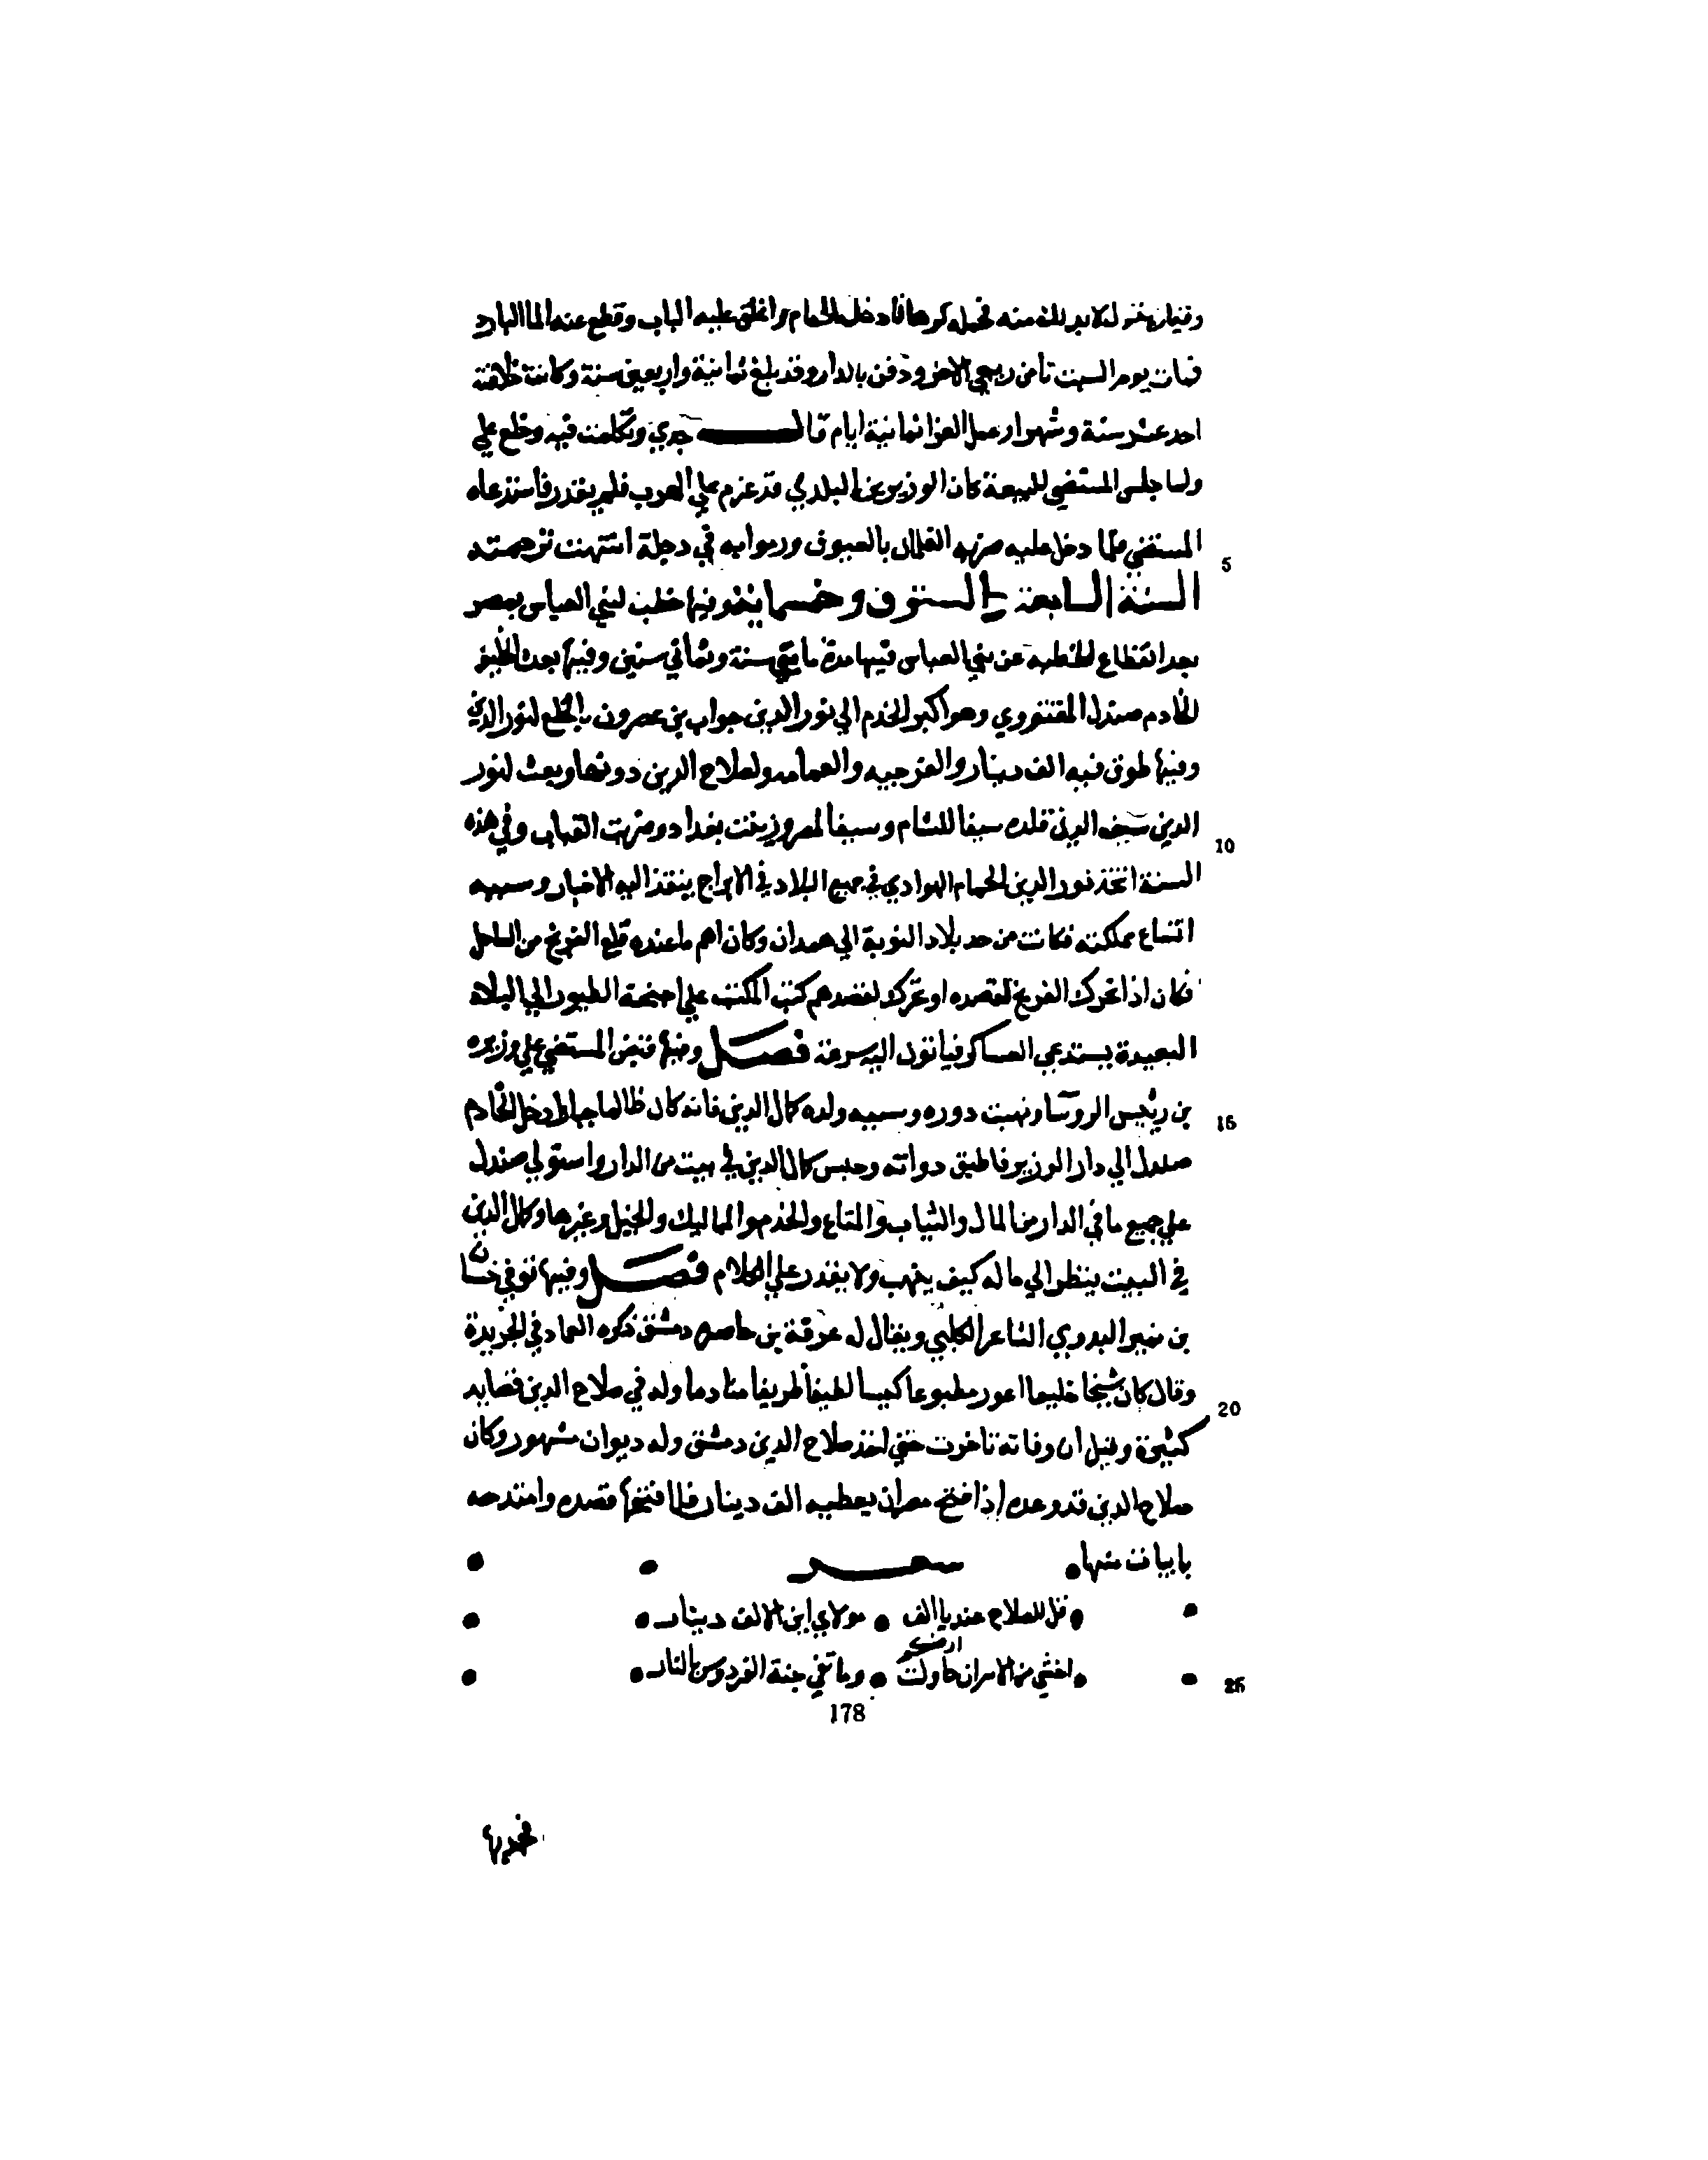 وقيماز فقال لا بد لك منه فحمل كرها فادخل الحمام واغلق عليه الباب وقطع عنه الما البارد
فمات يوم السبت ثامن ربيع الاخر ودفن بالدار وقد بلغ ثمانية واربعين سنة وكانت خلافته
احد عشر سنة وشهرا وعمل العزا ثمانية ايام قال جدي وتكلمت فيه وخلع علي
ولما جلس المستضي للبيعة كان الوزير بن البلدي قد عزم علي الهرب فلم يقدر فاستدعاه
المستضي فلما دخل عليه ضربه الغلمان بالسيوف ورموا به في دجلة انتهت ترجمته
5
السنة السابعة والستون وخمسماية وفيها خطب لبني العباس بمصر
بعد انقطاع الخطبة عن بني العباس فيها مدة مايتي سنة وثماني سنين وفيها بعث الخليفة
الخادم صندل المقتفوي وهو اكبر الخدم الي نور الدين جواب بن عصرون بالخلع لنور الدين
وفيها طوق فيه الف دينار والفرجيه والعمامه ولصلاح الدين دونها وبعث لنور
الدين سيفين قلده سيفا للشام وسيفا لمصر وزينت بغداد وضربت القباب وفي هذه
10
السنة اتخذ نور الدين الحمام الهوادي في جميع البلاد في الابراج ينقذ اليه الاخبار وسببه
اتساع مملكته فكانت من حد بلاد النوبة الي همدان وكان اهم ما عنده قلع الفرنج من الساحل
فكان اذا تحرك الفرنج لقصده او تحرك لقصدهم كتب الكتب علي اجنحة الطيور الي البلاد
البعيدة يستدعي العساكر فياتون اليه سرعة فصل وفيها قبض المستضي علي وزيره
بن رئيس الروسا ونهبت دوره وسببه ولده كمال الدين فانه كان ظالما جبارا دخل الخادم
15
صندل الي دار الوزير فاطبق دواته وحبس كمال الدين في بيت من الدار واستولي صندل
علي جميع ما في الدار من المال والثياب والمتاع والخدم والمماليك والخيل وغيرها وكمال الدين
في البيت ينظر الي ماله كيف ينهب ولا يقدر علي الكلام فصل وفيها توفي حسان
بن نمير البدوي الشاعر الكلبي ويقال له عرقة بن حاضرة دمشق ذكره العماد في الخريدة
وقال كان شيخا خليعا اعور مطبوعا كيسا لطيفا ظريفا منادما وله في صلاح الدين قصايد
20
كثيرة وقيل ان وفاته تاخرت حتي اخذ صلاح الدين دمشق وله ديوان مشهور وكان
صلاح الدين قد وعده اذا فتح مصر ان يعطيه الف دينار فلما فتحها قصده وامتدحه
بابيات منها شعر
قل للصلاح عند يا الف مولاي اين الالف دينار
اخشي من الاسر ان حاولت ارضكم وما تفي جنة الفردوس بالنار
25
178